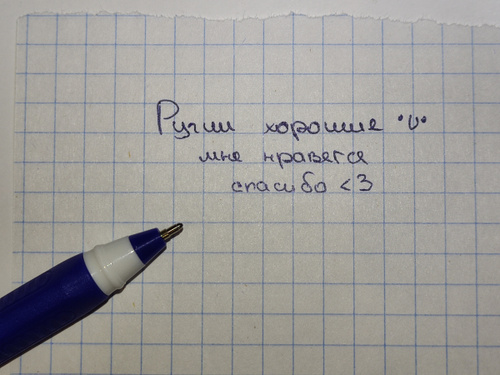 Ручки хорошие •υ•
мне нравется
спасибо <3